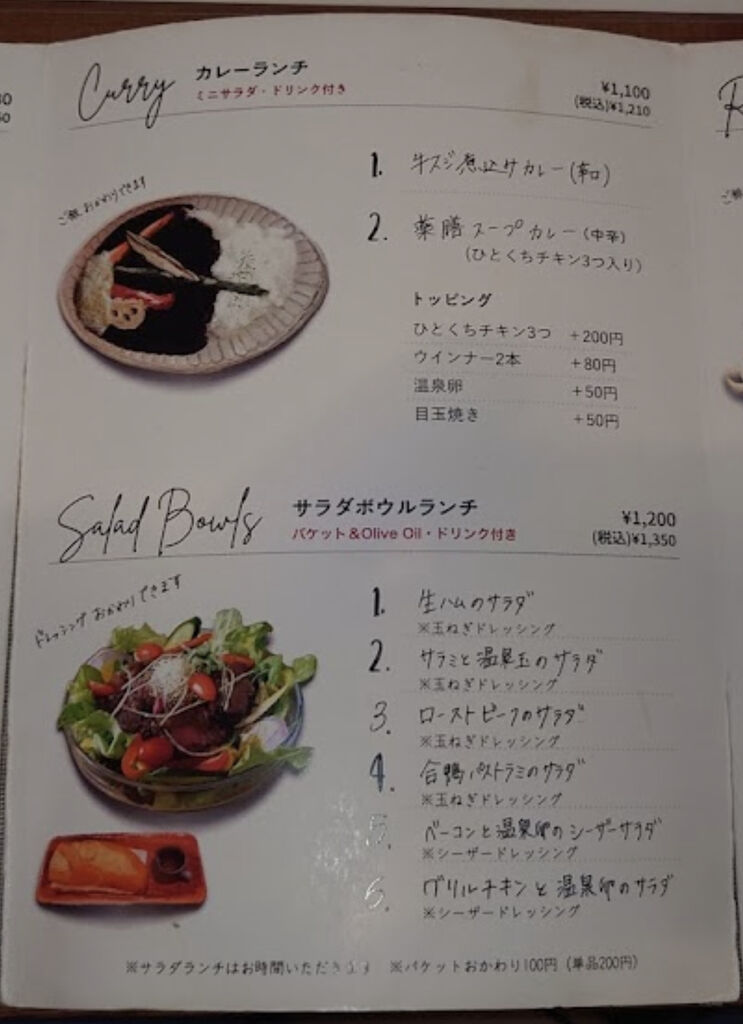 Curry カレーランチ
ミニサラダ・ドリンク付き
¥1,100
(税込)¥1,210
ご飯おかわりできます
1. 牛スジ煮込サカレー(辛口)
2. 薬膳スープカレー(中辛)
(ひとくちチキン3つ入り)
トッピング
ひとくちチキン3つ +200円
ウインナー2本 +80円
温泉卵 +50円
目玉焼き +50円
Salad Bowls サラダボウルランチ
バケット&Olive Oil・ドリンク付き
¥1,200
(税込)¥1,350
ドレッシングおかわりできます
1. 生ハムのサラダ
※玉ねぎドレッシング
2. サラミと温泉玉のサラダ
※玉ねぎドレッシング
3. ローストビーフのサラダ
※玉ねぎドレッシング
4. 合鴨パストラミのサラダ
※玉ねぎドレッシング
5. ベーコンと温泉卵のシーザーサラダ
※シーザードレッシング
6. グリルチキンと温泉卵のサラダ
※シーザードレッシング
※サラダランチはお時間いただきます ※バケットおかわり100円(単品200円)